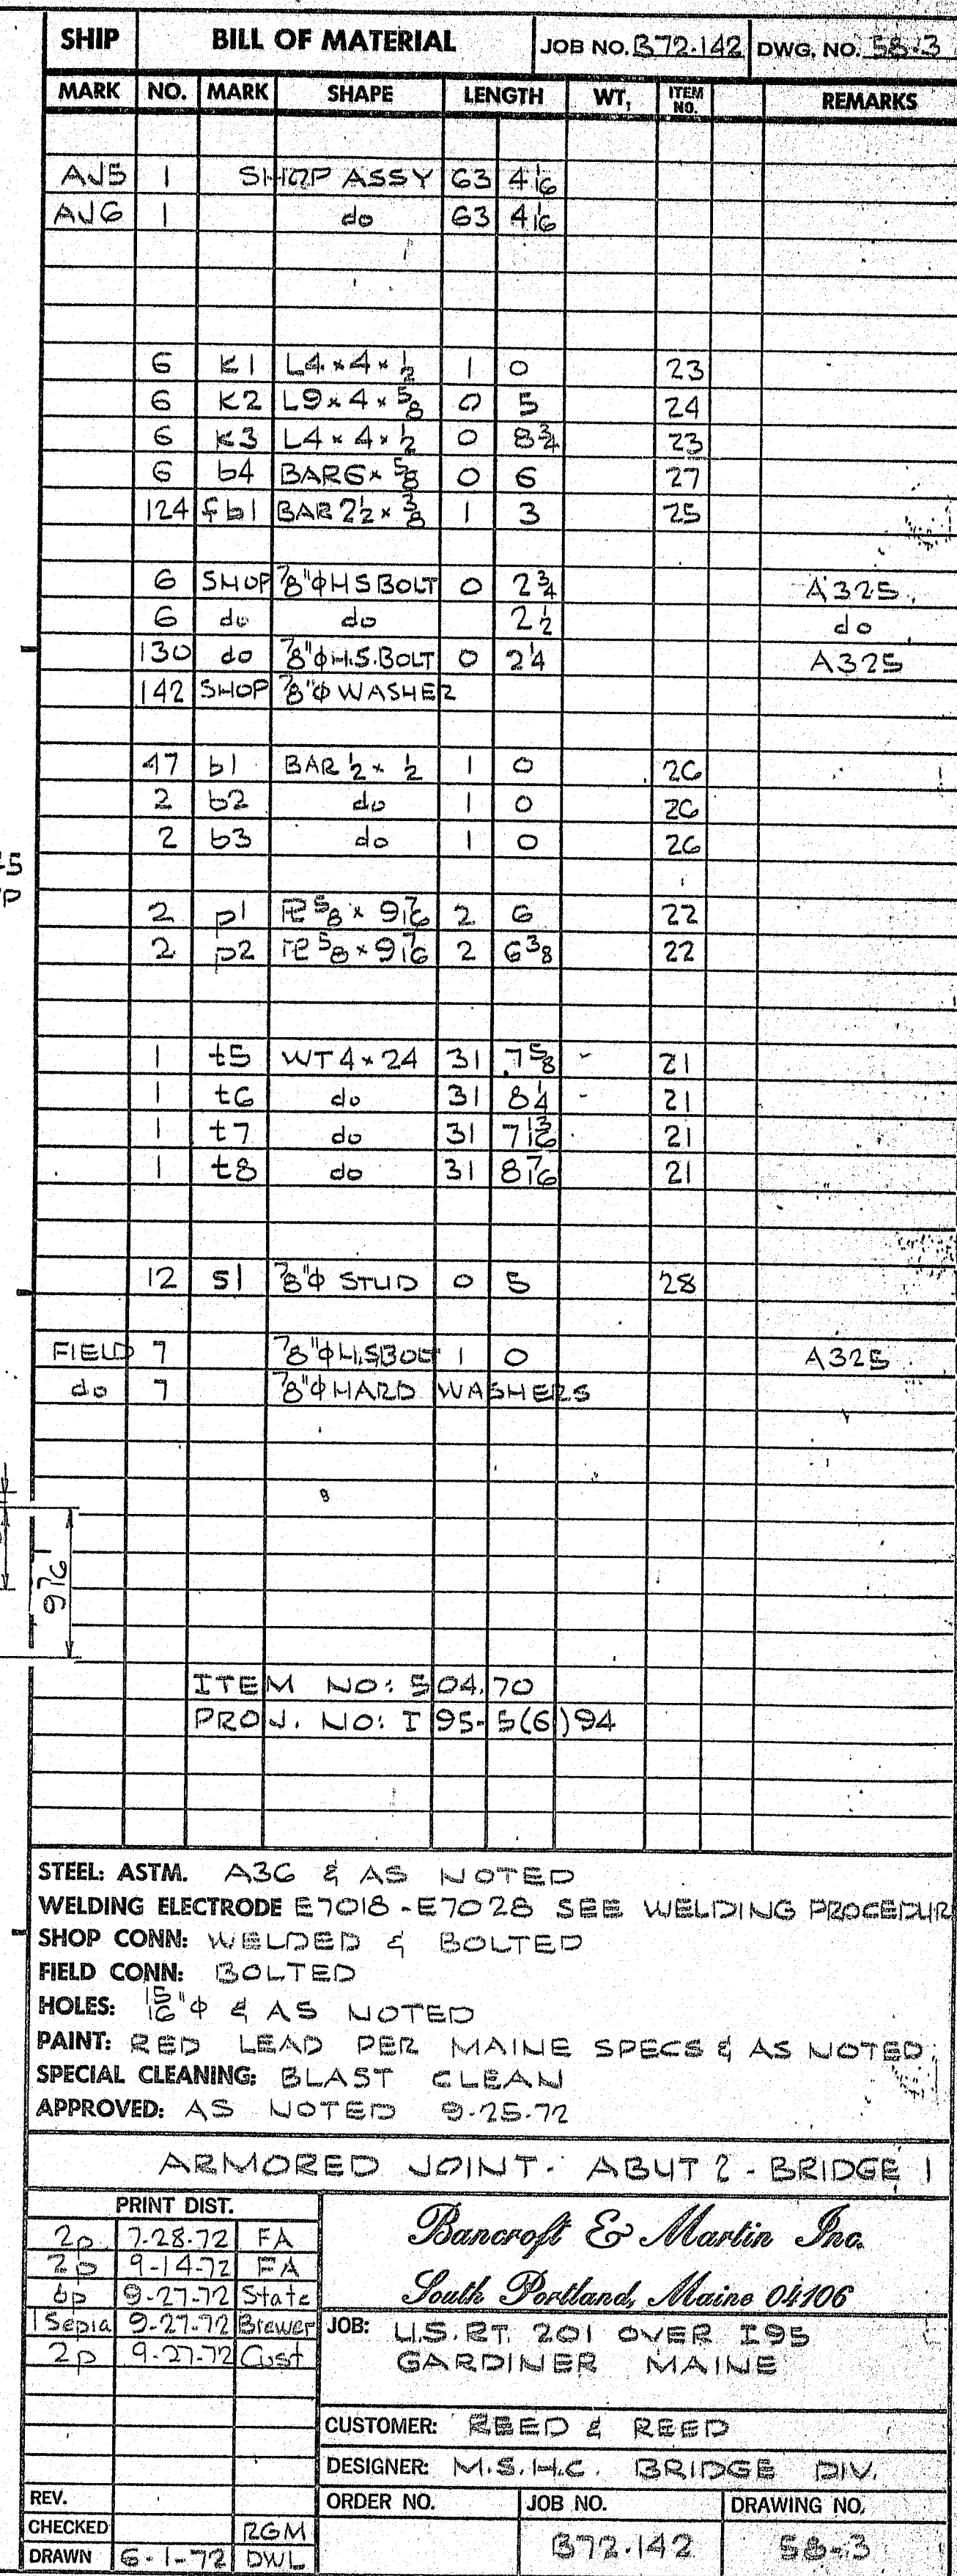 SHIP BILL OF MATERIAL JOB NO. B72-142 DWG. NO. 58-3
MARK NO. MARK SHAPE LENGTH WT. ITEM NO. REMARKS
AJ5 1 SHOP ASSY 63 4 1/16
AJ6 1 do 63 4 1/16
6 K1 L4 × 4 × 1/2 1 0 23
6 K2 L9 × 4 × 5/8 0 5 24
6 K3 L4 × 4 × 1/2 0 8 3/4 23
6 b4 BAR 6 × 5/8 0 6 27
124 fb1 BAR 2 1/2 × 3/8 1 3 25
6 SHOP 7/8"φ H S BOLT 0 2 3/4 A325
6 do do 2 1/2 do
130 do 7/8"φ H.S. BOLT 0 2 1/4 A325
142 SHOP 7/8"φ WASHER
47 b1 BAR 1/2 × 1/2 1 0 26
2 b2 do 1 0 26
2 b3 do 1 0 26
2 p1 PL 5/8 × 9 7/16 2 6 22
2 p2 PL 5/8 × 9 7/16 2 6 3/8 22
1 t5 WT 4 × 24 31 7 5/8 - 21
1 t6 do 31 8 1/4 - 21
1 t7 do 31 7 13/16 21
1 t8 do 31 8 7/16 21
12 s1 7/8"φ STUD 0 5 28
FIELD 7 7/8"φ H.S BOLT 1 0 A325
do 7 7/8"φ HARD WASHERS
9 7/16
ITEM NO: 504.70
PROJ. NO: I 95-5(6)94
STEEL: ASTM. A36 & AS NOTED
WELDING ELECTRODE E7018-E7028 SEE WELDING PROCEDUR
SHOP CONN: WELDED & BOLTED
FIELD CONN: BOLTED
HOLES: 15/16"φ & AS NOTED
PAINT: RED LEAD PER MAINE SPECS & AS NOTED
SPECIAL CLEANING: BLAST CLEAN
APPROVED: AS NOTED 9-25-72
ARMORED JOINT - ABUT 2 - BRIDGE 1
PRINT DIST.
2p 7-28-72 FA
2p 9-14-72 FA
6p 9-27-72 State
1 Sepia 9-27-72 Brewer
2p 9-27-72 Cust
Bancroft & Martin Inc.
South Portland, Maine 04106
JOB: U.S. RT. 201 OVER I95
GARDINER MAINE
CUSTOMER: REED & REED
DESIGNER: M.S.H.C. BRIDGE DIV.
REV.
CHECKED RGM
DRAWN 6-1-72 DWL
ORDER NO. JOB NO. DRAWING NO.
B72-142 58-3